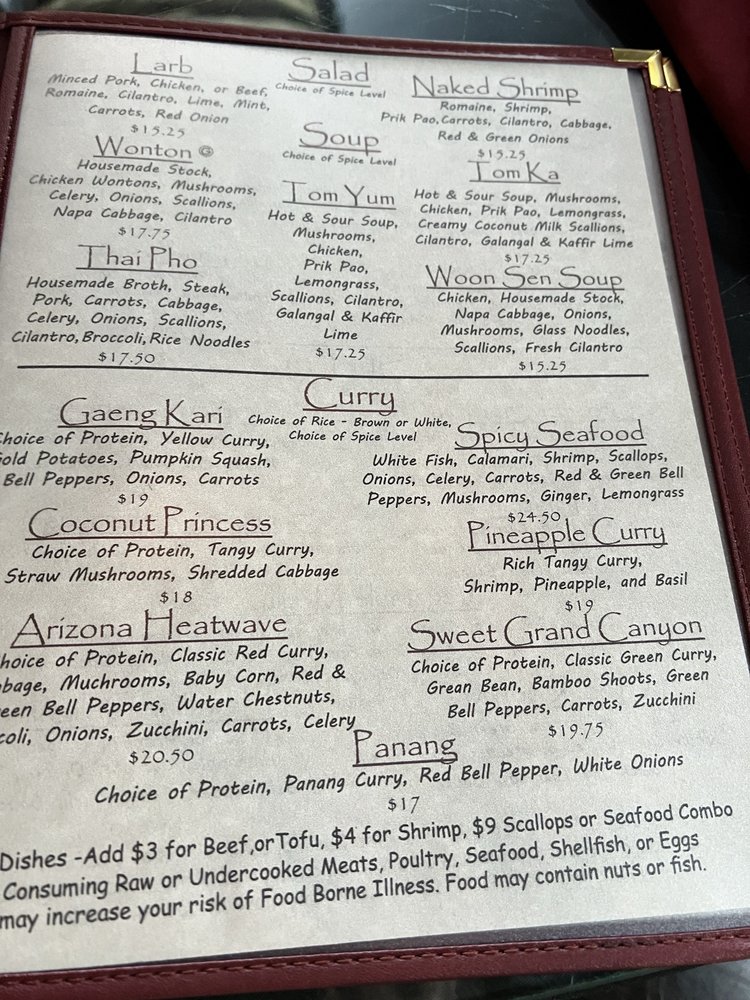 Larb
Minced Pork, Chicken, or Beef,
Romaine, Cilantro, Lime, Mint,
Carrots, Red Onion
$15.25
Salad
Choice of Spice Level
Naked Shrimp
Romaine, Shrimp,
Prik Pao, Carrots, Cilantro, Cabbage,
Red & Green Onions
$15.25
Wonton
Housemade Stock,
Chicken Wontons, Mushrooms,
Celery, Onions, Scallions,
Napa Cabbage, Cilantro
$17.75
Soup
Choice of Spice Level
Tom Yum
Hot & Sour Soup,
Mushrooms,
Chicken,
Prik Pao,
Lemongrass,
Scallions, Cilantro,
Galangal & Kaffir
Lime
$17.25
Tom Ka
Hot & Sour Soup, Mushrooms,
Chicken, Prik Pao, Lemongrass,
Creamy Coconut Milk Scallions,
Cilantro, Galangal & Kaffir Lime
$17.25
Thai Pho
Housemade Broth, Steak,
Pork, Carrots, Cabbage,
Celery, Onions, Scallions,
Cilantro, Broccoli, Rice Noodles
$17.50
Woon Sen Soup
Chicken, Housemade Stock,
Napa Cabbage, Onions,
Mushrooms, Glass Noodles,
Scallions, Fresh Cilantro
$15.25
Curry
Choice of Rice - Brown or White,
Choice of Spice Level
Gaeng Kari
Choice of Protein, Yellow Curry,
Gold Potatoes, Pumpkin Squash,
Bell Peppers, Onions, Carrots
$19
Spicy Seafood
White Fish, Calamari, Shrimp, Scallops,
Onions, Celery, Carrots, Red & Green Bell
Peppers, Mushrooms, Ginger, Lemongrass
$24.50
Coconut Princess
Choice of Protein, Tangy Curry,
Straw Mushrooms, Shredded Cabbage
$18
Pineapple Curry
Rich Tangy Curry,
Shrimp, Pineapple, and Basil
$19
Arizona Heatwave
hoice of Protein, Classic Red Curry,
bbage, Muchrooms, Baby Corn, Red &
een Bell Peppers, Water Chestnuts,
coli, Onions, Zucchini, Carrots, Celery
$20.50
Sweet Grand Canyon
Choice of Protein, Classic Green Curry,
Grean Bean, Bamboo Shoots, Green
Bell Peppers, Carrots, Zucchini
$19.75
Panang
Choice of Protein, Panang Curry, Red Bell Pepper, White Onions
$17
Dishes -Add $3 for Beef, or Tofu, $4 for Shrimp, $9 Scallops or Seafood Combo
Consuming Raw or Undercooked Meats, Poultry, Seafood, Shellfish, or Eggs
may increase your risk of Food Borne Illness. Food may contain nuts or fish.